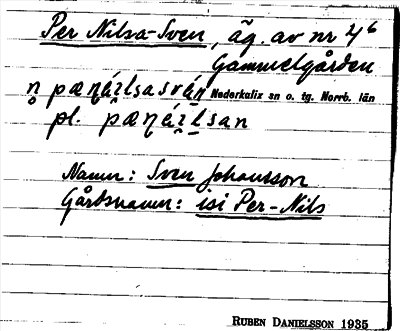 Per Nilsa-Sven, äg. av nr 4⁶
Gammelgården
Nederkalix sn o. tg. Norrb. län
pl.
Namn: Sven Johansson
Gårdsnamn: isi Per-Nils
RUBEN DANIELSSON 1935